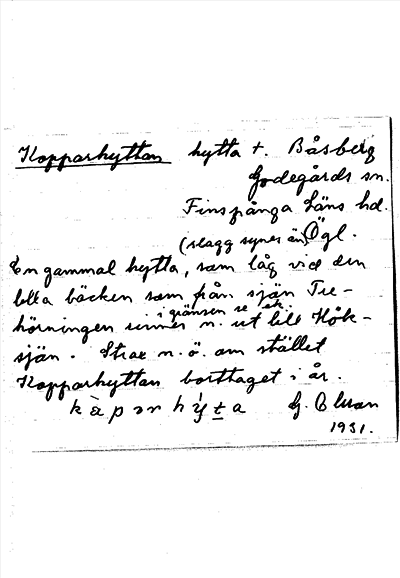 Kopparhyttan hytta t. Båsberg
Godegårds sn.
Finspånga Läns hd.
(slagg synes än) Ögl.
En gammal hytta, som låg vid den
lilla bäcken som från sjön Tre-
i gränsen se ek.
hörningen rinner n. ut till Hök-
sjön. Strax n.ö. om stället
Kopparhyttan borttaget i år.
k à p ə r h ý t a G. Olson
1931.